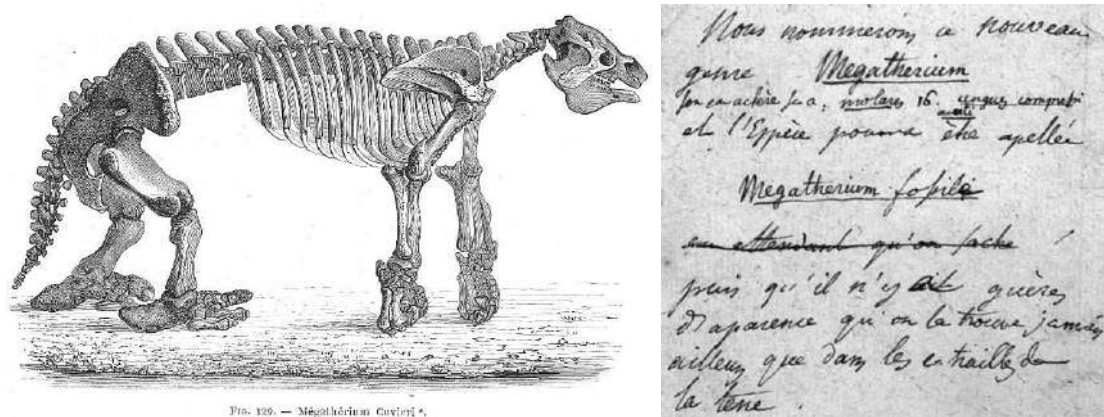 Fig. 129. — Mégathérium Cuvieri *.
Nous nommerons ce nouveau
genre Megatherium
son caractère sera, molares 16.
et l'Espèce pourra être apellée
Megatherium fossile
en attendant qu'on sache
puis qu'il n'y ait guères
d'aparence qu'on la trouve jamais
ailleurs que dans les entrailles de
la terre.